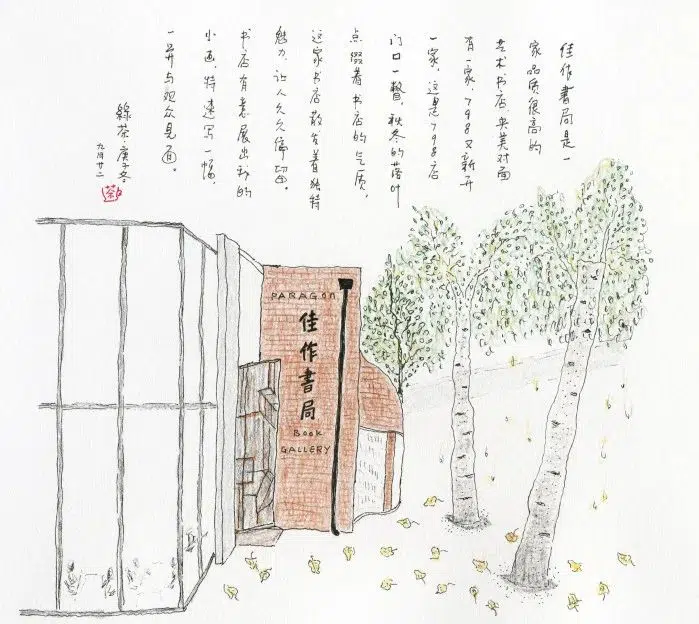 佳作書局是一
家品质很高的
艺术书店,央美对面
有一家,798又新开
一家。这是798店
门口一瞥,秋冬的落叶
点缀着书店的气质。
这家书店散发着独特
魅力,让人久久停留。
书店有意展出我的
小画,特速写一幅,
一并与观众见面。
綠茶 庚子冬
九月廿二
茶
PARAGON
佳作書局
BOOK
GALLERY